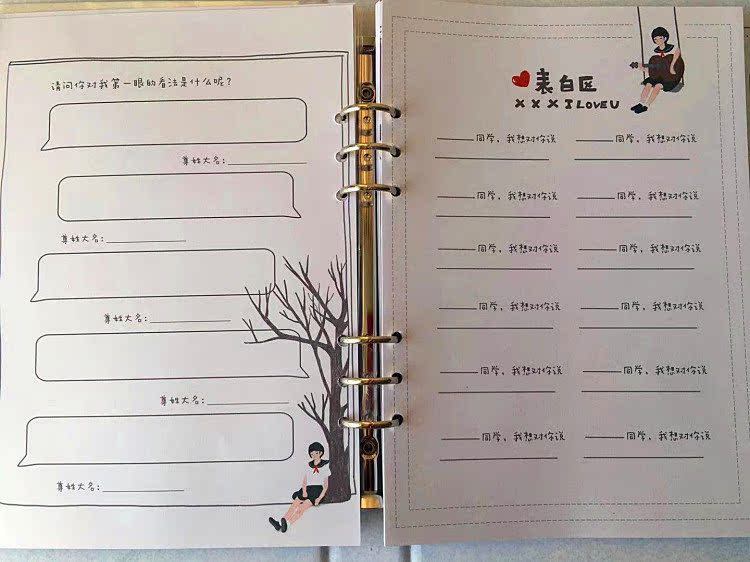 请问你对我第一眼的看法是什么呢?
尊姓大名:
尊姓大名:
尊姓大名:
尊姓大名:
尊姓大名:
表白区
×××I LOVE U
同学,我想对你说 同学,我想对你说
同学,我想对你说 同学,我想对你说
同学,我想对你说 同学,我想对你说
同学,我想对你说 同学,我想对你说
同学,我想对你说 同学,我想对你说
同学,我想对你说 同学,我想对你说